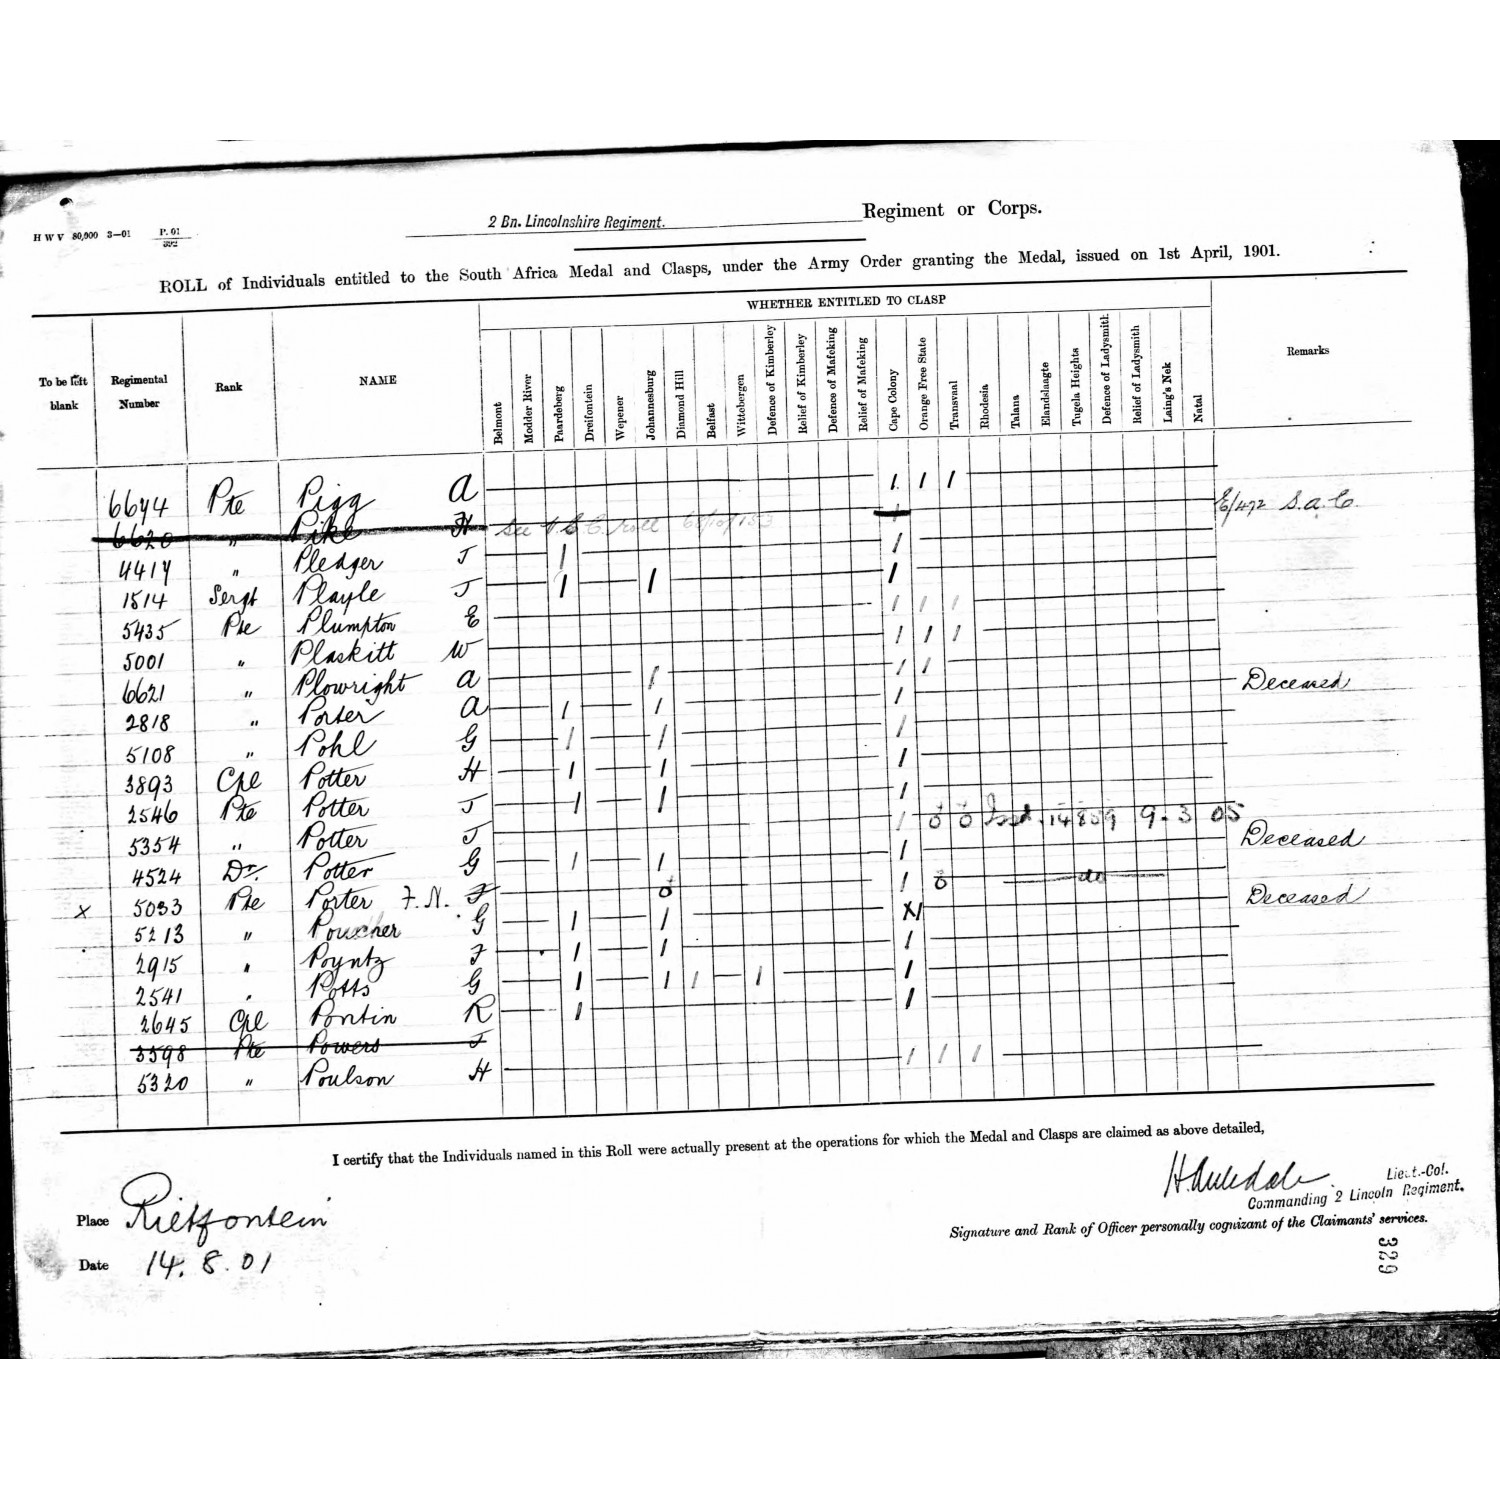 2 Bn. Lincolnshire Regiment. Regiment or Corps.
H W V 80,000 3—01 P. 01
ROLL of Individuals entitled to the South Africa Medal and Clasps, under the Army Order granting the Medal, issued on 1st April, 1901.
WHETHER ENTITLED TO CLASP
To be left blank
Regimental Number
Rank
NAME
Belmont
Modder River
Paardeberg
Dreifontein
Wepener
Johannesburg
Diamond Hill
Belfast
Wittebergen
Defence of Kimberley
Relief of Kimberley
Defence of Mafeking
Relief of Mafeking
Cape Colony
Orange Free State
Transvaal
Rhodesia
Talana
Elandslaagte
Tugela Heights
Defence of Ladysmith
Relief of Ladysmith
Laing's Nek
Natal
Remarks
6644 Pte Pigg A 1 1 1
6620 " Pike H See roll E/472 S.A.C.
4417 " Pledger J 1 1
1514 Sergt Playle J 1 1 1
5435 Pte Plumpton E 1 1 1
5001 " Plaskitt W 1 1 1
6621 " Plowright A 1 1 1 Deceased
2818 " Porter A 1 1 1
5108 " Pohl G 1 1 1
3893 Cpl Potter H 1 1 1
2546 Pte Potter J 1 1 1
5354 " Potter J 1 14859 9.3 05 Deceased
4524 Dr. Potter G 1 1 1
x 5033 Pte Porter F.N. F 1 do Deceased
5213 " Poucher G 1 1 X1
2915 " Poyntz F 1 1 1
2541 " Potts G 1 1 1 1 1
2645 Cpl Pontin R 1 1
3598 Pte Powers J
5320 " Poulson H 1 1 1
I certify that the Individuals named in this Roll were actually present at the operations for which the Medal and Clasps are claimed as above detailed,
Lieut.-Col.
Commanding 2 Lincoln Regiment.
Place Rietfontein
Signature and Rank of Officer personally cognizant of the Claimants' services.
Date 14. 8. 01
329